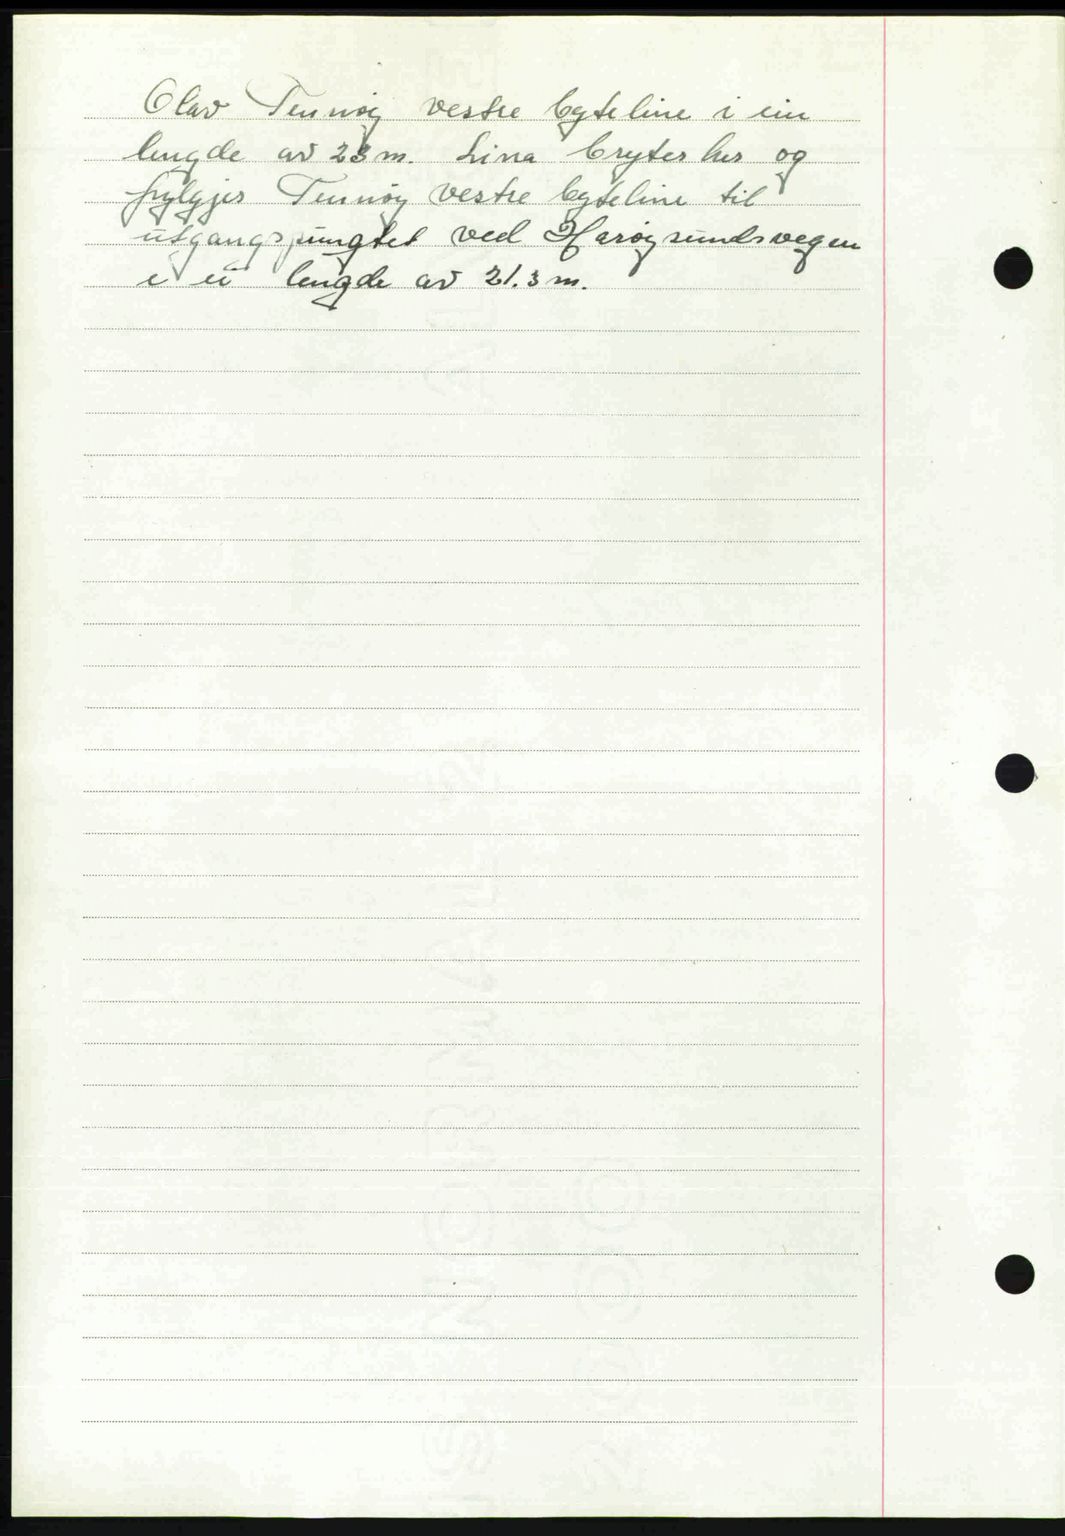 Olav Tennøy vestre byteline i ein
lengde av 23 m. Lina bryter her og
fylgjer Tennøy vestre byteline til
utgangspungtet ved Harøysundsvegen
i ei lengde av 21.3 m.